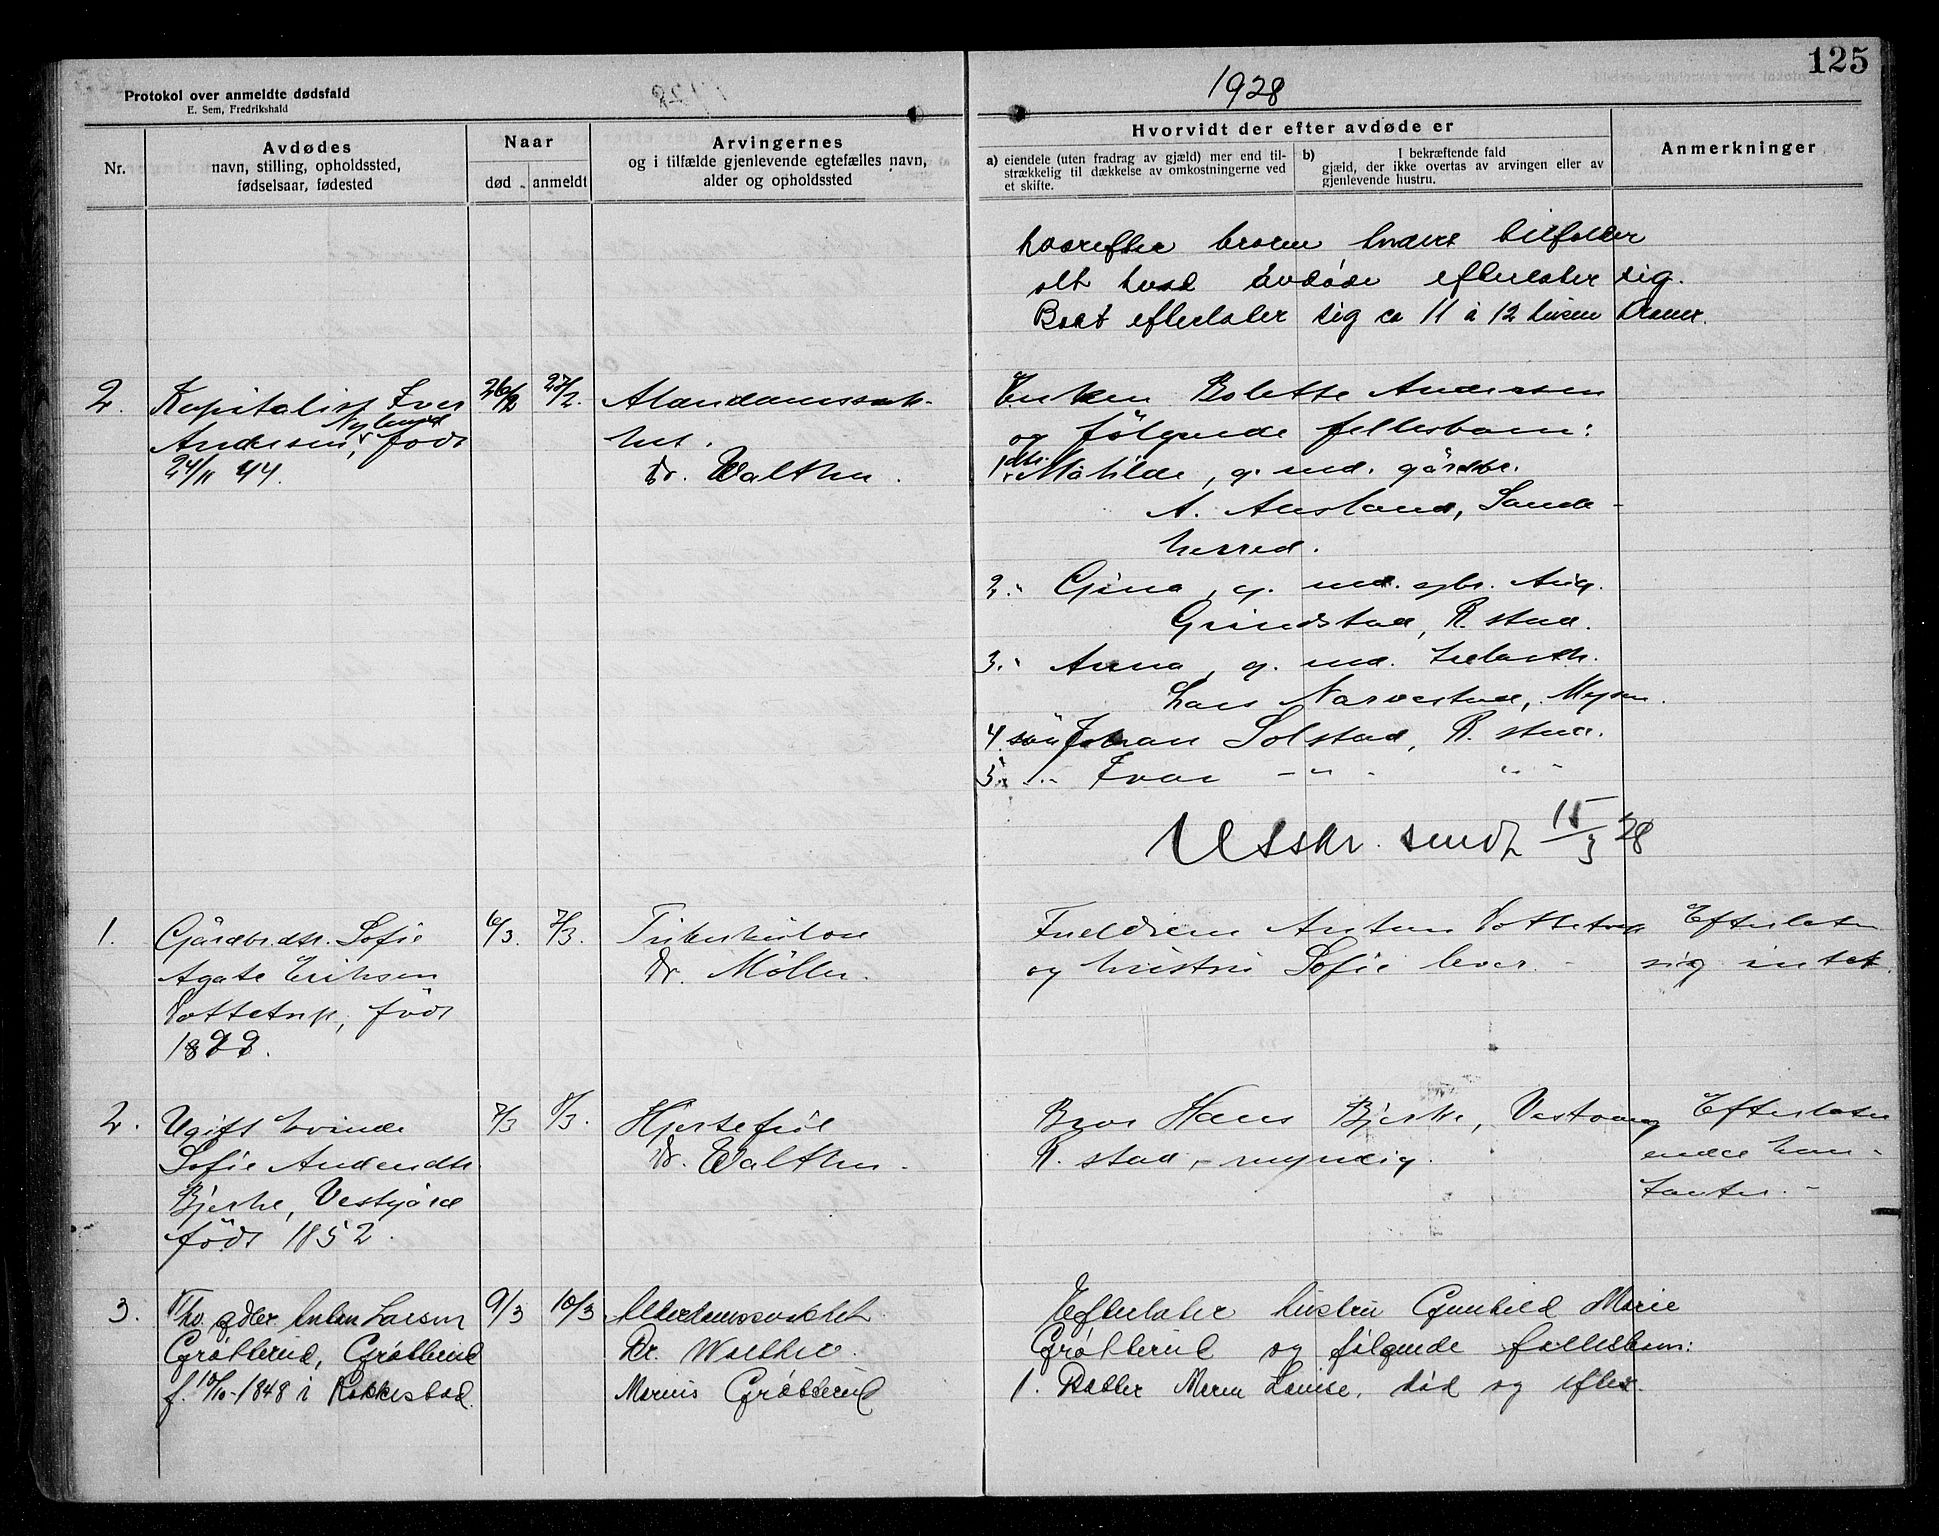 125
1928
Protokol over anmeldte dødsfald
E. Sem, Fredrikshald
Nr.
Avdødes
navn, stilling, opholdssted,
fødselsaar, fødested
Naar
død
anmeldt
Arvingernes
og i tilfælde gjenlevende egtefælles navn,
alder og opholdssted
Hvorvidt der efter avdøde er
a) eiendele (uten fradrag av gjæld) mer end til-
strækkelig til dækkelse av omkostningerne ved
et skifte.
b) I bekræftende fald
gjæld, der ikke overtas av arvingen eller av
gjenlevende hustru.
Anmerkninger
hvorefter broren tilfalder
alt hvad avdøde efterlater sig.
Boet efterlater sig ca 11 à 12 tusen kroner.
2.
Kapitalist Iver
Andersen Nylund, født
24/11 44.
26/2
27/2.
Alderdomssvak-
het.
Dr. Walther.
Enken Bolette Andersen
og følgende fellesbarn:
1. dtr. Mathilde, g. md. gårdbr.
A. Ausland, Sande-
herred.
2. " Gina, g. md. gbr. Aug.
Grindstad, R.stad.
3. " Anna, g. md.
Lars Narvestad, Mysen.
4. søn Johan Solstad, R.stad.
5. " Ivar - " - " -
Utskr. sendt 15/3 28
1.
Gårdbrdtr. Sofie
Agate Eriksen
Vattetrup, født
1899.
6/3.
7/3.
Tuberkulose
Dr. Møller.
Foreldrene Anton Vattetrup
og hustru Sofie lever. -
Efterlater
sig intet.
2.
Ugift kvinde
Sofie Andersdtr.
Bjerke, Vestgård
født 1852.
7/3
8/3.
Hjertefeil
Dr. Walther.
Bror Hans Bjerke,
R.stad, - myndig.
Efterlater
endel kon-
tanter. -
3.
Fhv. gdbr. Anton Larsen
Grøtterud, Grøtterud
f. 10/10-1848 i Rakkestad.
9/3
10/3
Alderdomssvakhet
Dr. Walther.
Marius Grøtterud
Efterlater hustru Gunhild Marie
Grøtterud og følgende fellesbarn:
1. Datter Maren Lovise, død og efter-